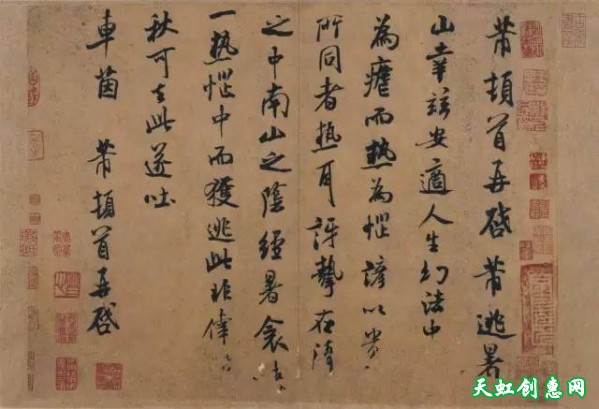 芾頓首再啓芾逃暑
山幸兹安適人生幻法中
為瘧而熱為惱諺以貴
所同者熱耳訝摯在清
之中南山之陰經暑衾
一熱惱中而獲逃此非倖
秋可去此遂吐
車茵 芾頓首再啓
天虹创惠网